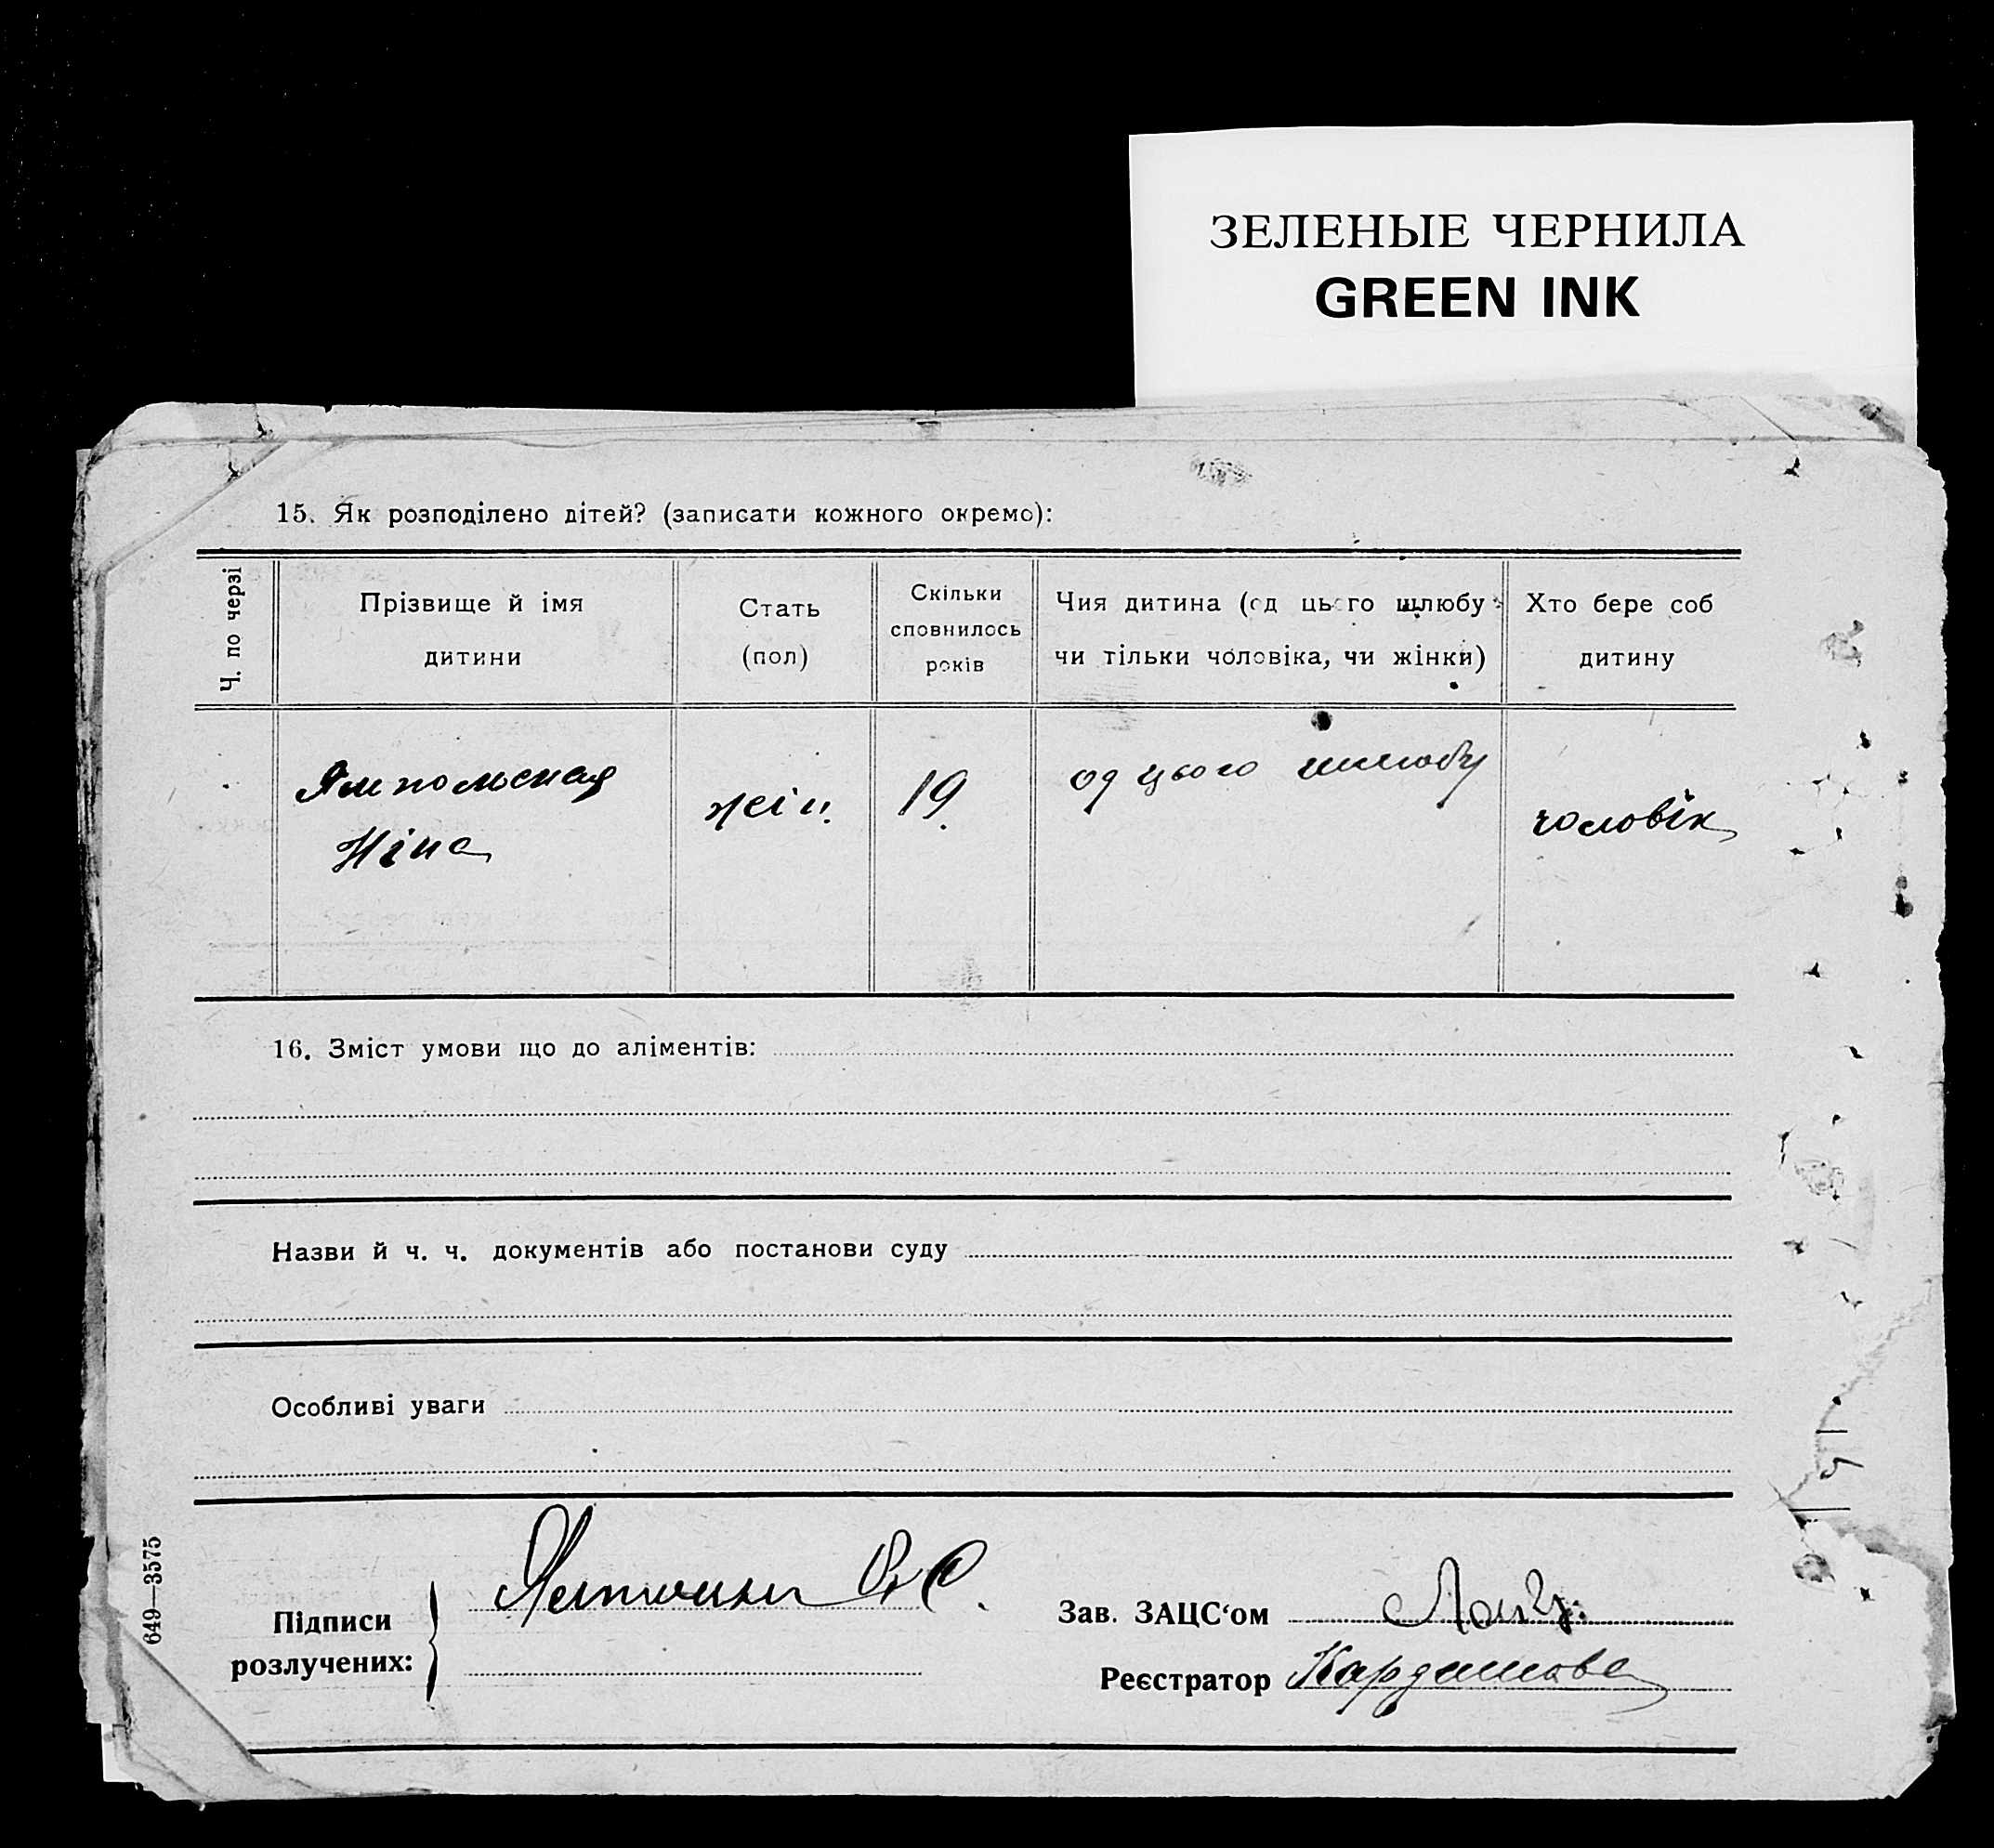 ЗЕЛЕНЫЕ ЧЕРНИЛА
GREEN INK
15. Як розподілено дітей? (записати кожного окремо):
Ч. по черзі
Прізвище й імя
дитини
Стать
(пол)
Скільки
сповнилось
років
Чия дитина (од цього шлюбу
чи тільки чоловіка, чи жінки)
Хто бере соб
дитину
Ямпольская
Ніна
жін.
19
од цього шлюбу
чоловік
16. Зміст умови що до аліментів:
Назви й ч. ч. документів або постанови суду
Особливі уваги
649—3575
Підписи
розлучених:
Зав. ЗАЦС‘ом
Реєстратор Кардашова